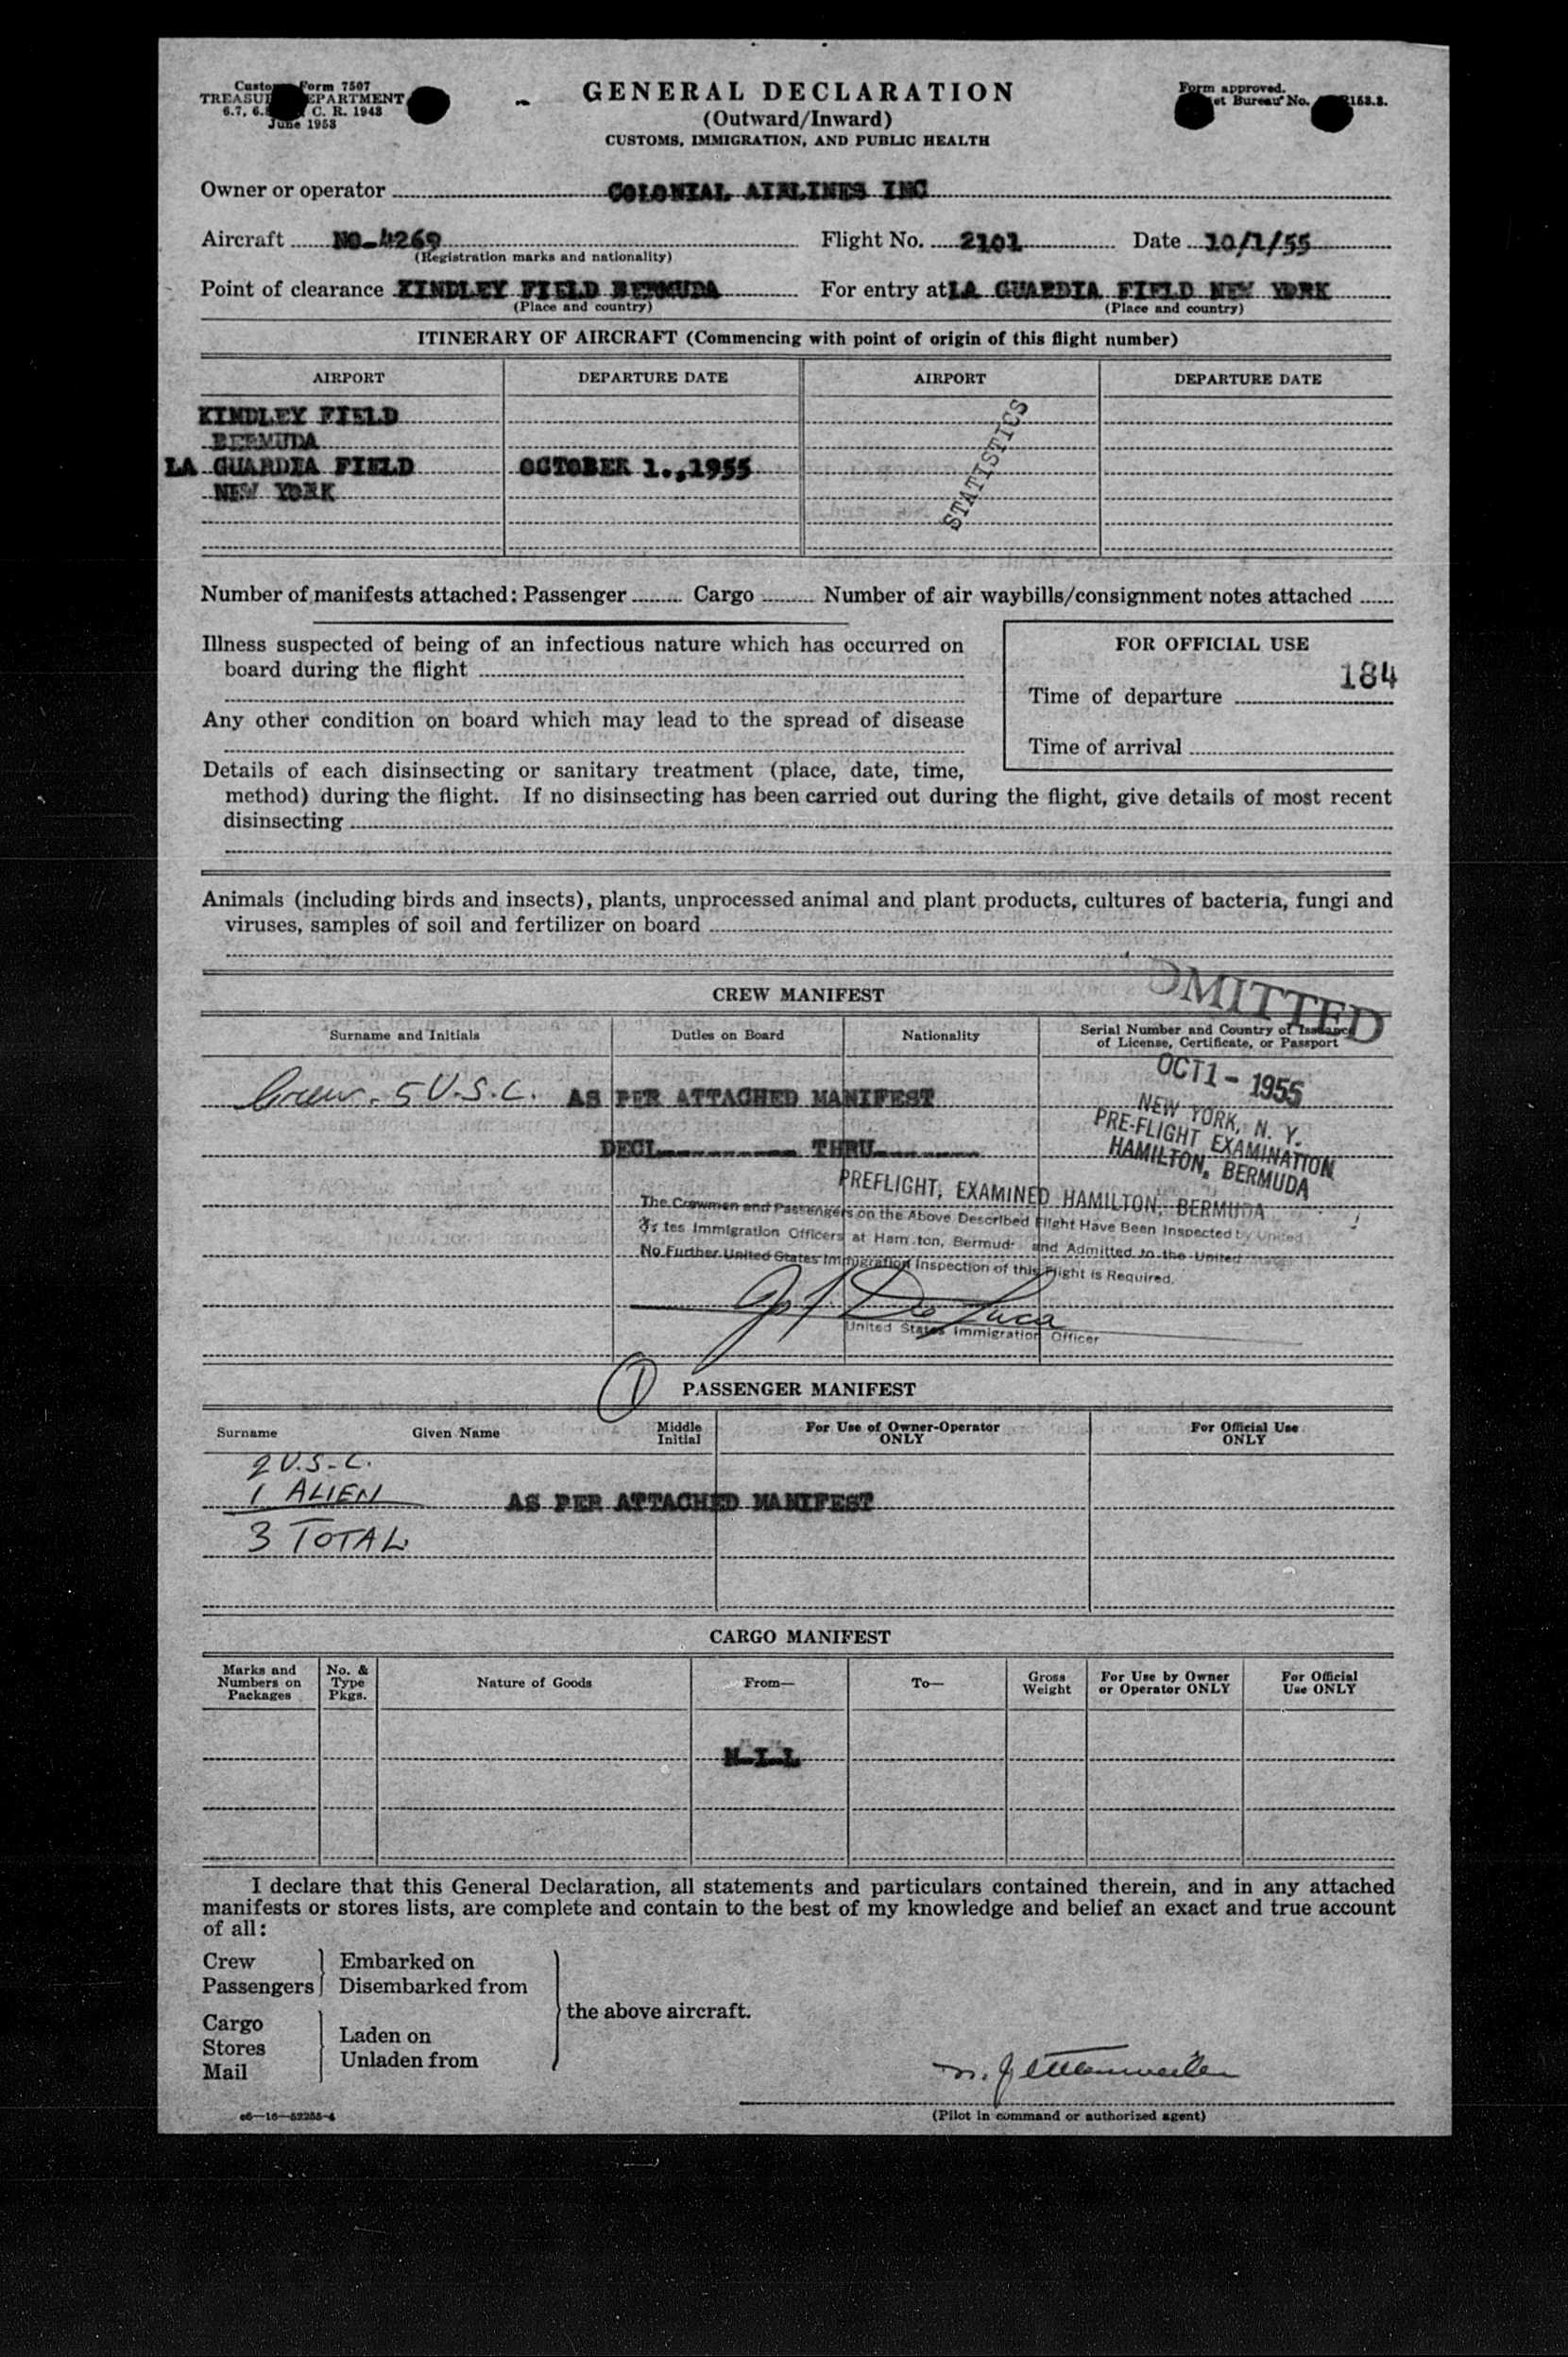 Form 7507
TREASURY DEPARTMENT
C. R. 1943
June 1953
GENERAL DECLARATION
(Outward/Inward)
CUSTOMS, IMMIGRATION, AND PUBLIC HEALTH
Form approved.
et Bureau No. 153.3.
Owner or operator COLONIAL AIRLINES INC
Aircraft NO-4269 Flight No. 2101 Date 10/1/55
(Registration marks and nationality)
Point of clearance KINDLEY FIELD BERMUDA For entry at LA GUARDIA FIELD NEW YORK
(Place and country) (Place and country)
ITINERARY OF AIRCRAFT (Commencing with point of origin of this flight number)
AIRPORT DEPARTURE DATE AIRPORT DEPARTURE DATE
KINDLEY FIELD
BERMUDA
LA GUARDIA FIELD OCTOBER 1.,1955
NEW YORK
STATISTICS
Number of manifests attached: Passenger Cargo Number of air waybills/consignment notes attached
Illness suspected of being of an infectious nature which has occurred on
board during the flight
FOR OFFICIAL USE
184
Time of departure
Any other condition on board which may lead to the spread of disease
Time of arrival
Details of each disinsecting or sanitary treatment (place, date, time,
method) during the flight. If no disinsecting has been carried out during the flight, give details of most recent
disinsecting
Animals (including birds and insects), plants, unprocessed animal and plant products, cultures of bacteria, fungi and
viruses, samples of soil and fertilizer on board
CREW MANIFEST
DMITTED
Surname and Initials Duties on Board Nationality Serial Number and Country of Issuance
of License, Certificate, or Passport
OCT 1 - 1955
Crew. 5 U.S.C. AS PER ATTACHED MANIFEST
NEW YORK, N. Y.
PRE-FLIGHT EXAMINATION
HAMILTON, BERMUDA
DECL THRU
PREFLIGHT, EXAMINED HAMILTON, BERMUDA
The Crewmen and Passengers on the Above Described Flight Have Been Inspected by United
tes Immigration Officers at Ham ton, Bermud and Admitted to the United States
No Further United States Immigration Inspection of this Flight is Required.
De Luca
United States Immigration Officer
1 PASSENGER MANIFEST
Surname Given Name Middle Initial For Use of Owner-Operator ONLY For Official Use ONLY
2 U.S.C.
1 ALIEN AS PER ATTACHED MANIFEST
3 TOTAL
CARGO MANIFEST
Marks and Numbers on Packages No. & Type Pkgs. Nature of Goods From— To— Gross Weight For Use by Owner or Operator ONLY For Official Use ONLY
N-I-L
I declare that this General Declaration, all statements and particulars contained therein, and in any attached
manifests or stores lists, are complete and contain to the best of my knowledge and belief an exact and true account
of all:
Crew Embarked on
Passengers Disembarked from
the above aircraft.
Cargo
Stores Laden on
Mail Unladen from
(Pilot in command or authorized agent)
c6—16—52255-4